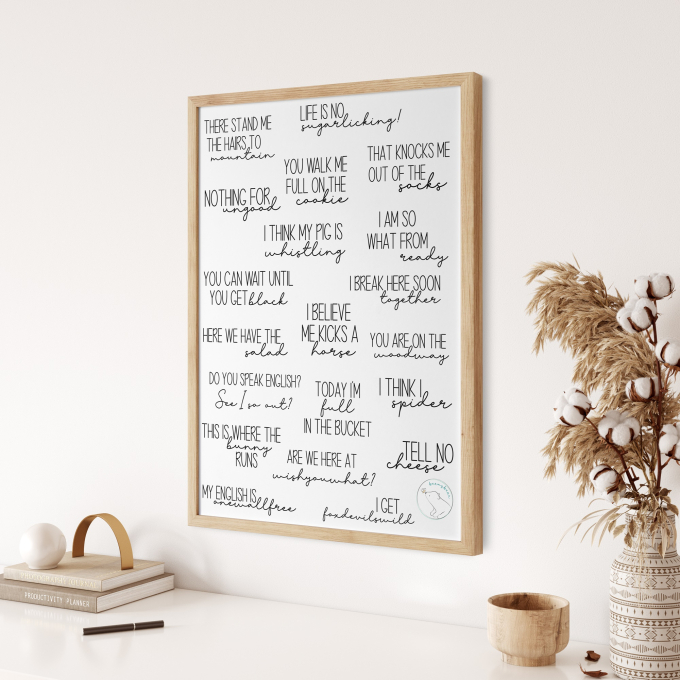 THERE STAND ME
THE HAIRS TO
mountain
LIFE IS NO
sugarlicking!
YOU WALK ME
FULL ON THE
cookie
THAT KNOCKS ME
OUT OF THE
socks
NOTHING FOR
ungood
I THINK MY PIG IS
whistling
I AM SO
WHAT FROM
ready
YOU CAN WAIT UNTIL
YOU GET black
I BREAK HERE SOON
together
I BELIEVE
ME KICKS A
horse
HERE WE HAVE THE
salad
YOU ARE ON THE
woodway
DO YOU SPEAK ENGLISH?
See I so out?
TODAY I'M
full
IN THE BUCKET
I THINK I
spider
THIS IS WHERE THE
bunny
RUNS
ARE WE HERE AT
wishyouwhat?
TELL NO
cheese
MY ENGLISH IS
onewallfree
I GET
foxdevilswild
PRODUCTIVITY PLANNER